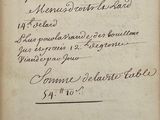 Menus droits le Lard
14 s de lard
Plus pour la viande des bouillons
Jus et pieces 12 l de grosse
Viande par Jour
Somme de laditte table
54 ᵗᵗ 10 s